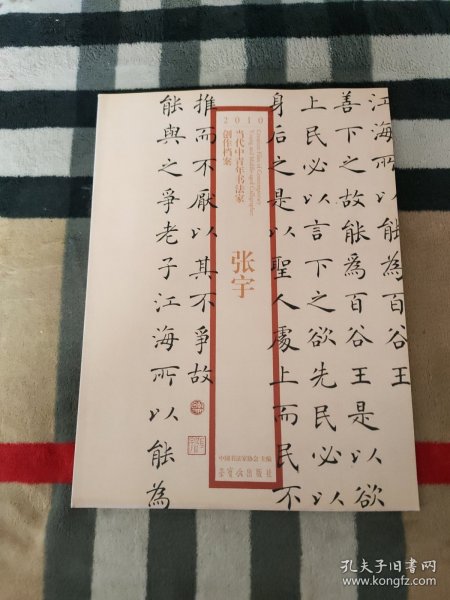 江海所以能為百谷王
善下之故能為百谷王是以欲
上民必以言下之欲先民必以
身后之是以聖人處上而民不
推而不厭以其不爭故
能與之爭老子江海所以能為
2010
当代中青年书法家
创作档案
张宇
中国书法家协会 主编
荣宝斋出版社
孔夫子旧书网
www.kongfz.com